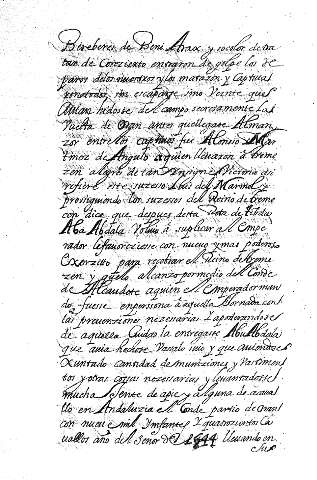 Bereberes de Beni Arax, y socolor de tra
tava de Concierto entraron de golpe los de
paros de los nuestros y los mataron y Captiva
ron a todos, sin escaparse sino Veente que
del Campo secretamente La
Vuelta de Oran antes que llegase Alman
zor entre los Captivos fue Alonso Mar
tinez de Angulo a quien llevaron a Treme
zen
refiere este suzeso Luis del Marmol, y
prosiguiendo los suzesos del Reino de Treme
cen dice que despues desta Rota de Tibda
Aba Abdala Volvio á suplicar al Empe
rador le favoreziesse con nuevo y mas poderoso
Exerzito para recobrar el Reino de Treme
zen y que lo alcanzo por medio del Conde
de Alcaudete a quien el Emperador man
do fuesse en persona á aquella Jornada con
las prevenziones necesarias y apoderandose
de aquella Ciudad la entregase Aba Abdala
que avia hechose Vasallo suio y que aviendose
Xuntado cantidad de muniziones y Vastimen
tos y otras cosas necessarias y levantadosse
mucha gente de a pie y alguna de a cava
llo en Andaluzia el Conde partio de Oran
con nueve mil Ynfantes y quatrocientos Ca
vallos año del Señor de 1544 llevando en